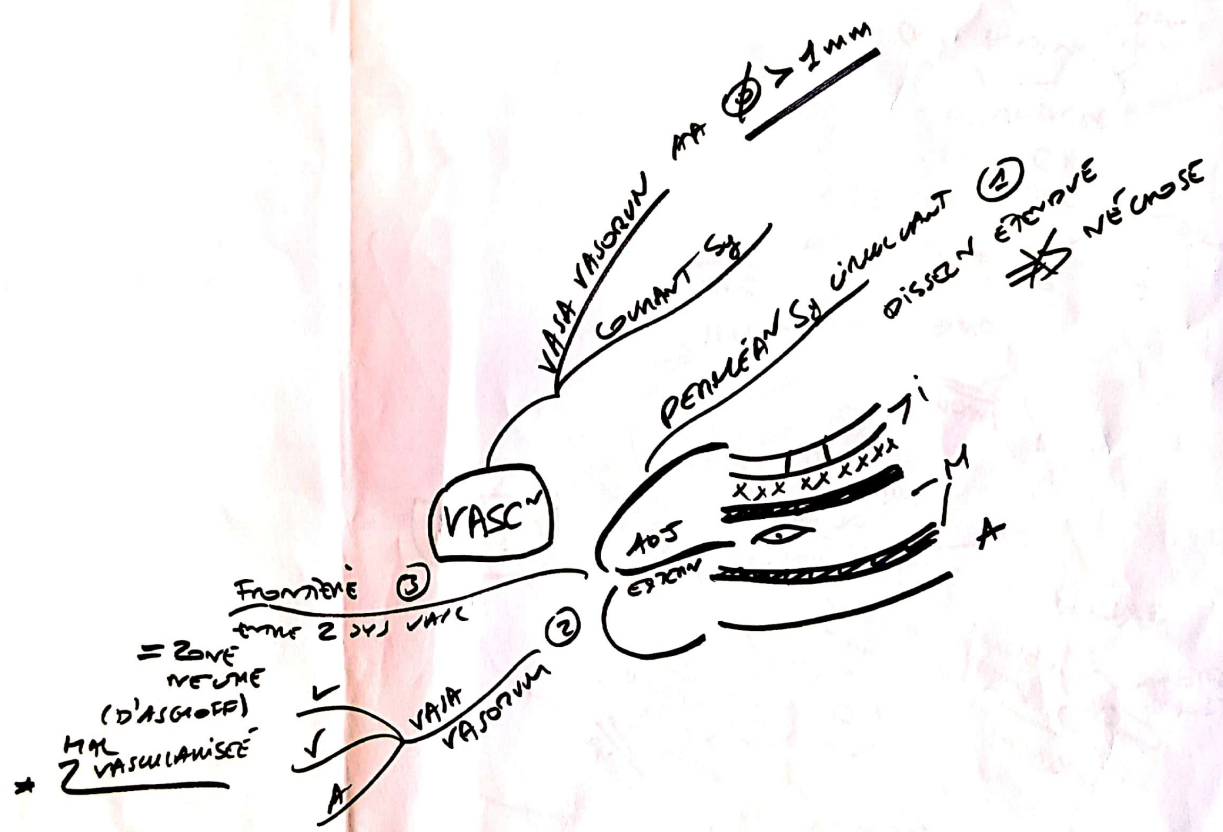 VASA VASORUM
AA ø > 1mm
COURANT Sg
PERMÉAN Sg CIRCULANT ①
DISSECN ÉTENDUE
≠> NÉCROSE
VASCN
i
XXX XX XXXX
M
ADJ
A
EXTERN
FRONTIÈRE ③
ENTRE 2 SYS VASC
= ZONE
NEUTRE
(D'ASCHOFF)
* MAL
VASCULARISÉE
②
VASA
VASORUM
V
A